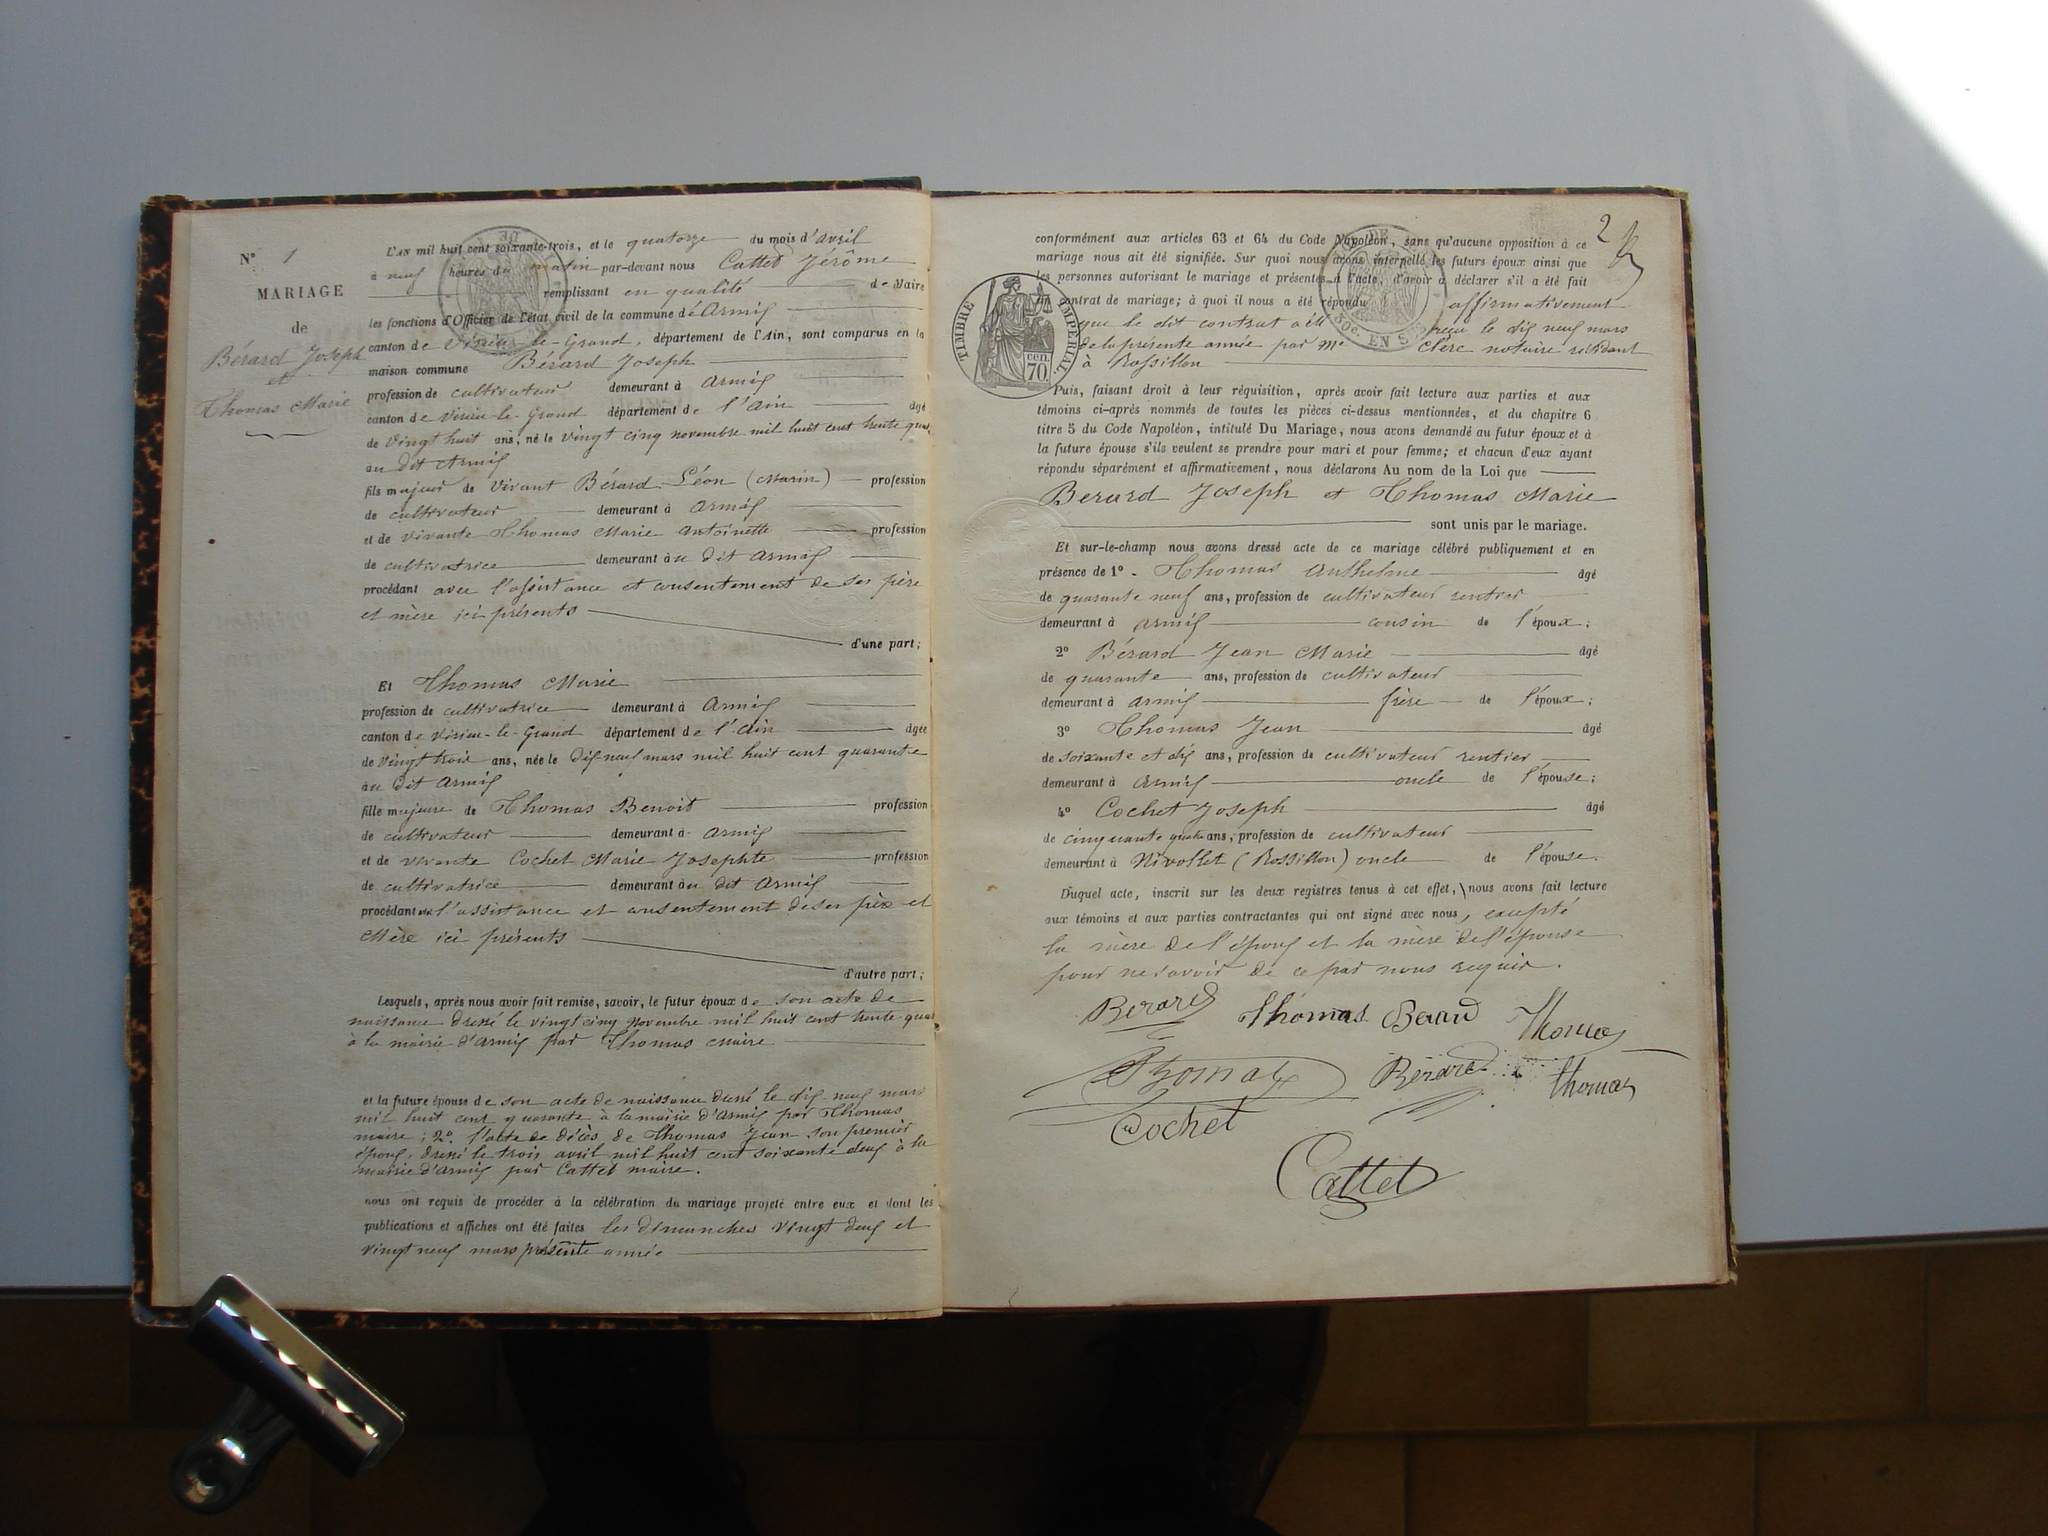 N° 1
MARIAGE
de
Bérard Joseph
et
Thomas Marie
L'AN mil huit cent soixante-trois, et le quatorze du mois d'avril
à neuf heures du matin par-devant nous Cattet Jérôme
remplissant en qualité de Maire
les fonctions d'Officier de l'état civil de la commune d'Armix
canton de Virieu-le-Grand, département de l'Ain, sont comparus en la
maison commune Bérard Joseph
profession de cultivateur demeurant à Armix
canton de Virieu-le-Grand département de l'Ain âgé
de vingt huit ans, né le vingt cinq novembre mil huit cent trente quatre
au dit Armix
fils majeur de vivant Bérard Léon (Marin) profession
de cultivateur demeurant à Armix
et de vivante Thomas Marie Antoinette profession
de cultivatrice demeurant au dit Armix
procédant avec l'assistance et consentement de ses père
et mère ici présents
d'une part;
Et Thomas Marie
profession de cultivatrice demeurant à Armix
canton de Virieu-le-Grand département de l'Ain âgée
de vingt trois ans, née le dix-neuf mars mil huit cent quarante
au dit Armix
fille majeure de Thomas Benoit profession
de cultivateur demeurant à Armix
et de vivante Cochet Marie Josephte profession
de cultivatrice demeurant au dit Armix
procédant l'assistance et consentement de ses père et
Mère ici présents
d'autre part;
Lesquels, après nous avoir fait remise, savoir, le futur époux de son acte de
naissance dressé le vingt cinq novembre mil huit cent trente quatre
à la mairie d'Armix par Thomas Maire
et la future épouse de son acte de naissance dressé le dix neuf mars
mil huit cent quarante à la mairie d'Armix par Thomas
maire; 2°. l'acte de décès de Thomas Jean son premier
époux, dressé le trois avril mil huit cent soixante deux à la
mairie d'Armix par Cattet maire.
nous ont requis de procéder à la célébration du mariage projeté entre eux et dont les
publications et affiches ont été faites les dimanches vingt deux et
vingt neuf mars présente année
2
conformément aux articles 63 et 64 du Code Napoléon, sans qu'aucune opposition à ce
mariage nous ait été signifiée. Sur quoi nous avons interpellé les futurs époux ainsi que
les personnes autorisant le mariage et présentes à l'acte, d'avoir à déclarer s'il a été fait
un contrat de mariage; à quoi il nous a été répondu affirmativement
que le dit contrat a été reçu le dix neuf mars
de la présente année par Me Clerc notaire résidant
à Rossillon
TIMBRE IMPERIAL
cen. 70
Puis, faisant droit à leur réquisition, après avoir fait lecture aux parties et aux
témoins ci-après nommés de toutes les pièces ci-dessus mentionnées, et du chapitre 6
titre 5 du Code Napoléon, intitulé Du Mariage, nous avons demandé au futur époux et à
la future épouse s'ils veulent se prendre pour mari et pour femme; et chacun d'eux ayant
répondu séparément et affirmativement, nous déclarons Au nom de la Loi que
Berard Joseph et Thomas Marie
sont unis par le mariage.
Et sur-le-champ nous avons dressé acte de ce mariage célébré publiquement et en
présence de 1° Thomas Anthelme âgé
de quarante neuf ans, profession de cultivateur rentier
demeurant à Armix cousin de l'époux;
2° Bérard Jean Marie âgé
de quarante ans, profession de cultivateur
demeurant à Armix frère de l'époux;
3° Thomas Jean âgé
de soixante et dix ans, profession de cultivateur rentier
demeurant à Armix oncle de l'épouse;
4° Cochet Joseph âgé
de cinquante quatre ans, profession de cultivateur
demeurant à Nivollet (Rossillon) oncle de l'épouse.
Duquel acte, inscrit sur les deux registres tenus à cet effet, nous avons fait lecture
aux témoins et aux parties contractantes qui ont signé avec nous, excepté
la mère de l'époux et la mère de l'épouse
pour ne savoir de ce par nous requis.
Berard Thomas Berard Thomas
Thomas Bérard Thomas
Cochet
Cattet